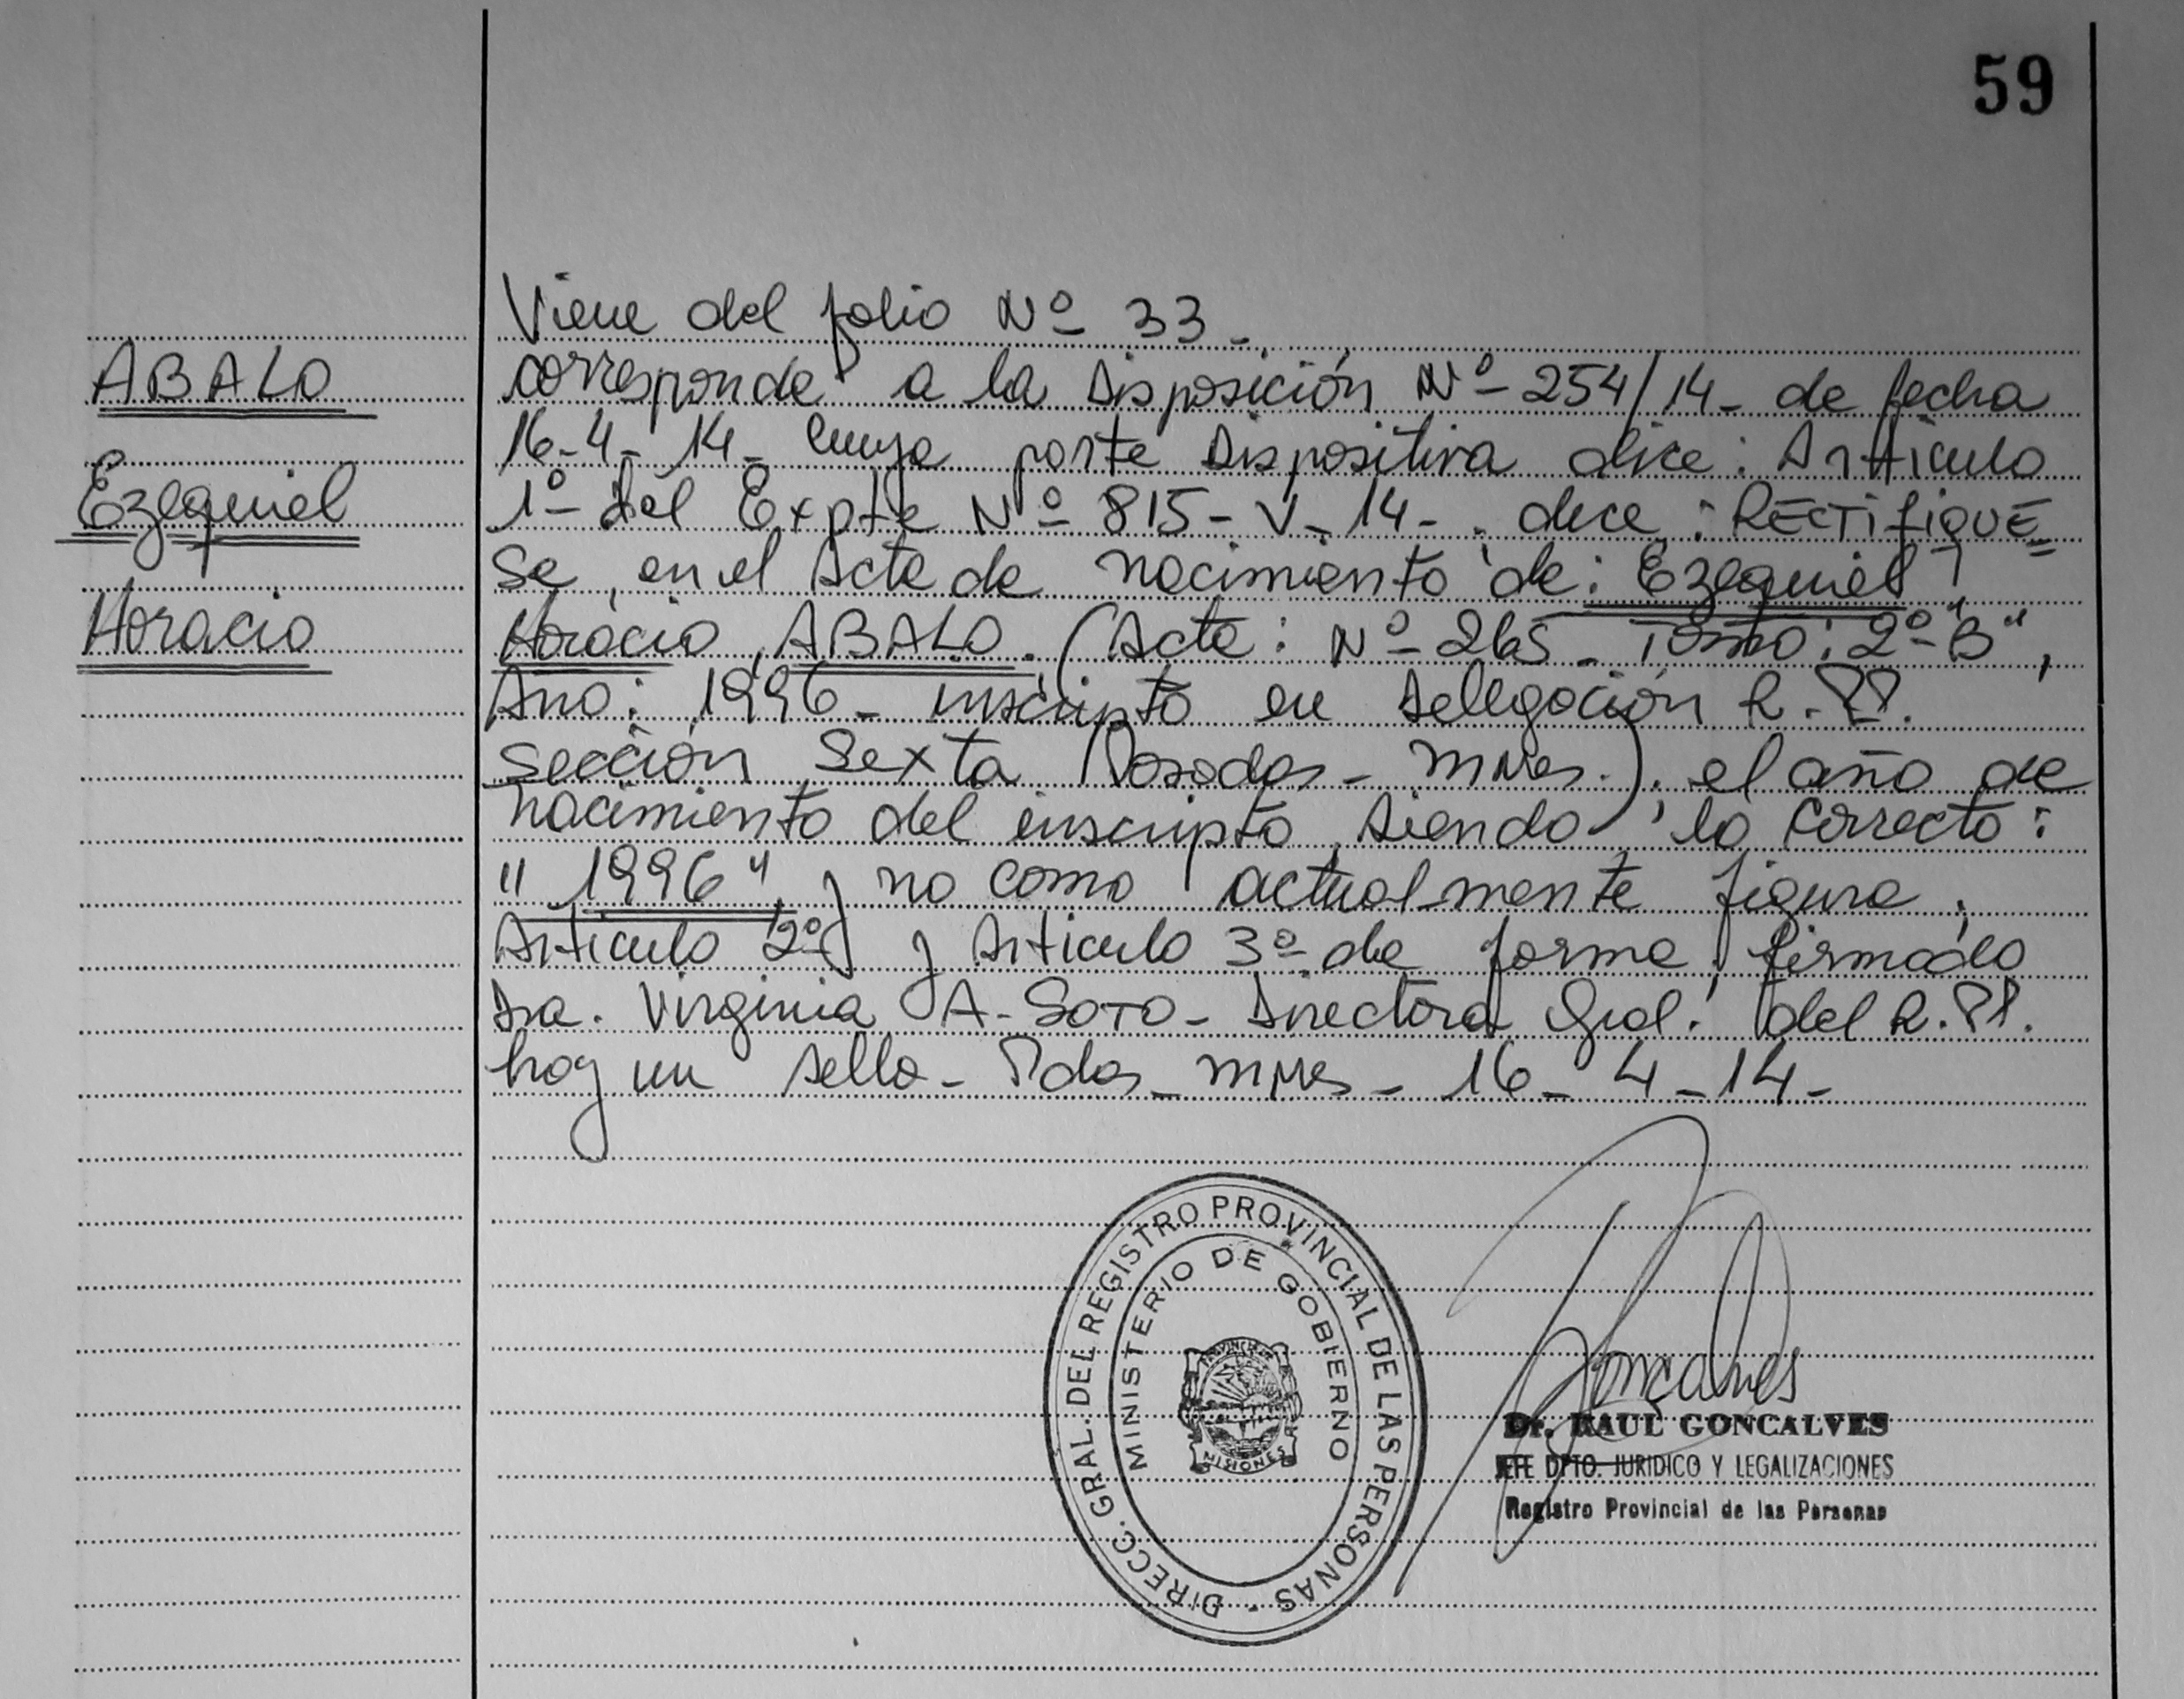 59
Viene del folio Nº 33-
ABALO
corresponde a la Disposición Nº 254/14- de fecha
16-4-14- cuya parte Dispositiva dice: Artículo
Ezequiel
1º del Expte Nº 815-V-14-, dice: RECTIFIQUE
se, en el Acta de nacimiento de: Ezequiel
Horacio
Horacio, ABALO. (Acta: Nº 265- Tomo: 2º "B",
Año: 1996- inscripto en Delegación R.PP.
Sección Sexta Posadas- Mnes.), el año de
nacimiento del inscripto, siendo lo correcto:
"1996", y no como actualmente figura.
Artículo 2º y Artículo 3º de forma, firmado
Dra. Virginia A. SOTO- Directora Gral. del R.PP.
hay un sello- Pdas- Mnes- 16-4-14-
DIRECC. GRAL. DEL REGISTRO PROVINCIAL DE LAS PERSONAS -
MINISTERIO DE GOBIERNO
PROVINCIA DE
MISIONES
Goncalves
Dr. RAUL GONCALVES
JEFE DPTO. JURIDICO Y LEGALIZACIONES
Registro Provincial de las Personas